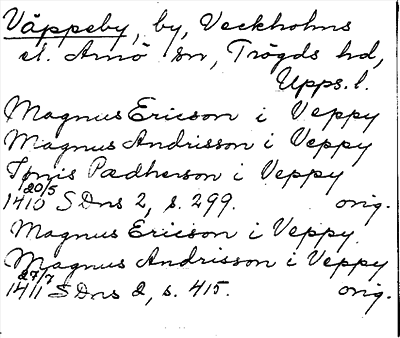 Väppeby, by, Veckholms
el. Arnö sn, Trögds hd,
Upps. l.
Magnus Ericson i Veppy
Magnus Andrisson i Veppy
Jønis Pædherson i Veppy
1410 20/5 SDns 2, s. 299. orig.
Magnus Ericson i Veppy.
Magnus Andrisson i Veppy
1411 27/7 SDns 2, s. 415. orig.